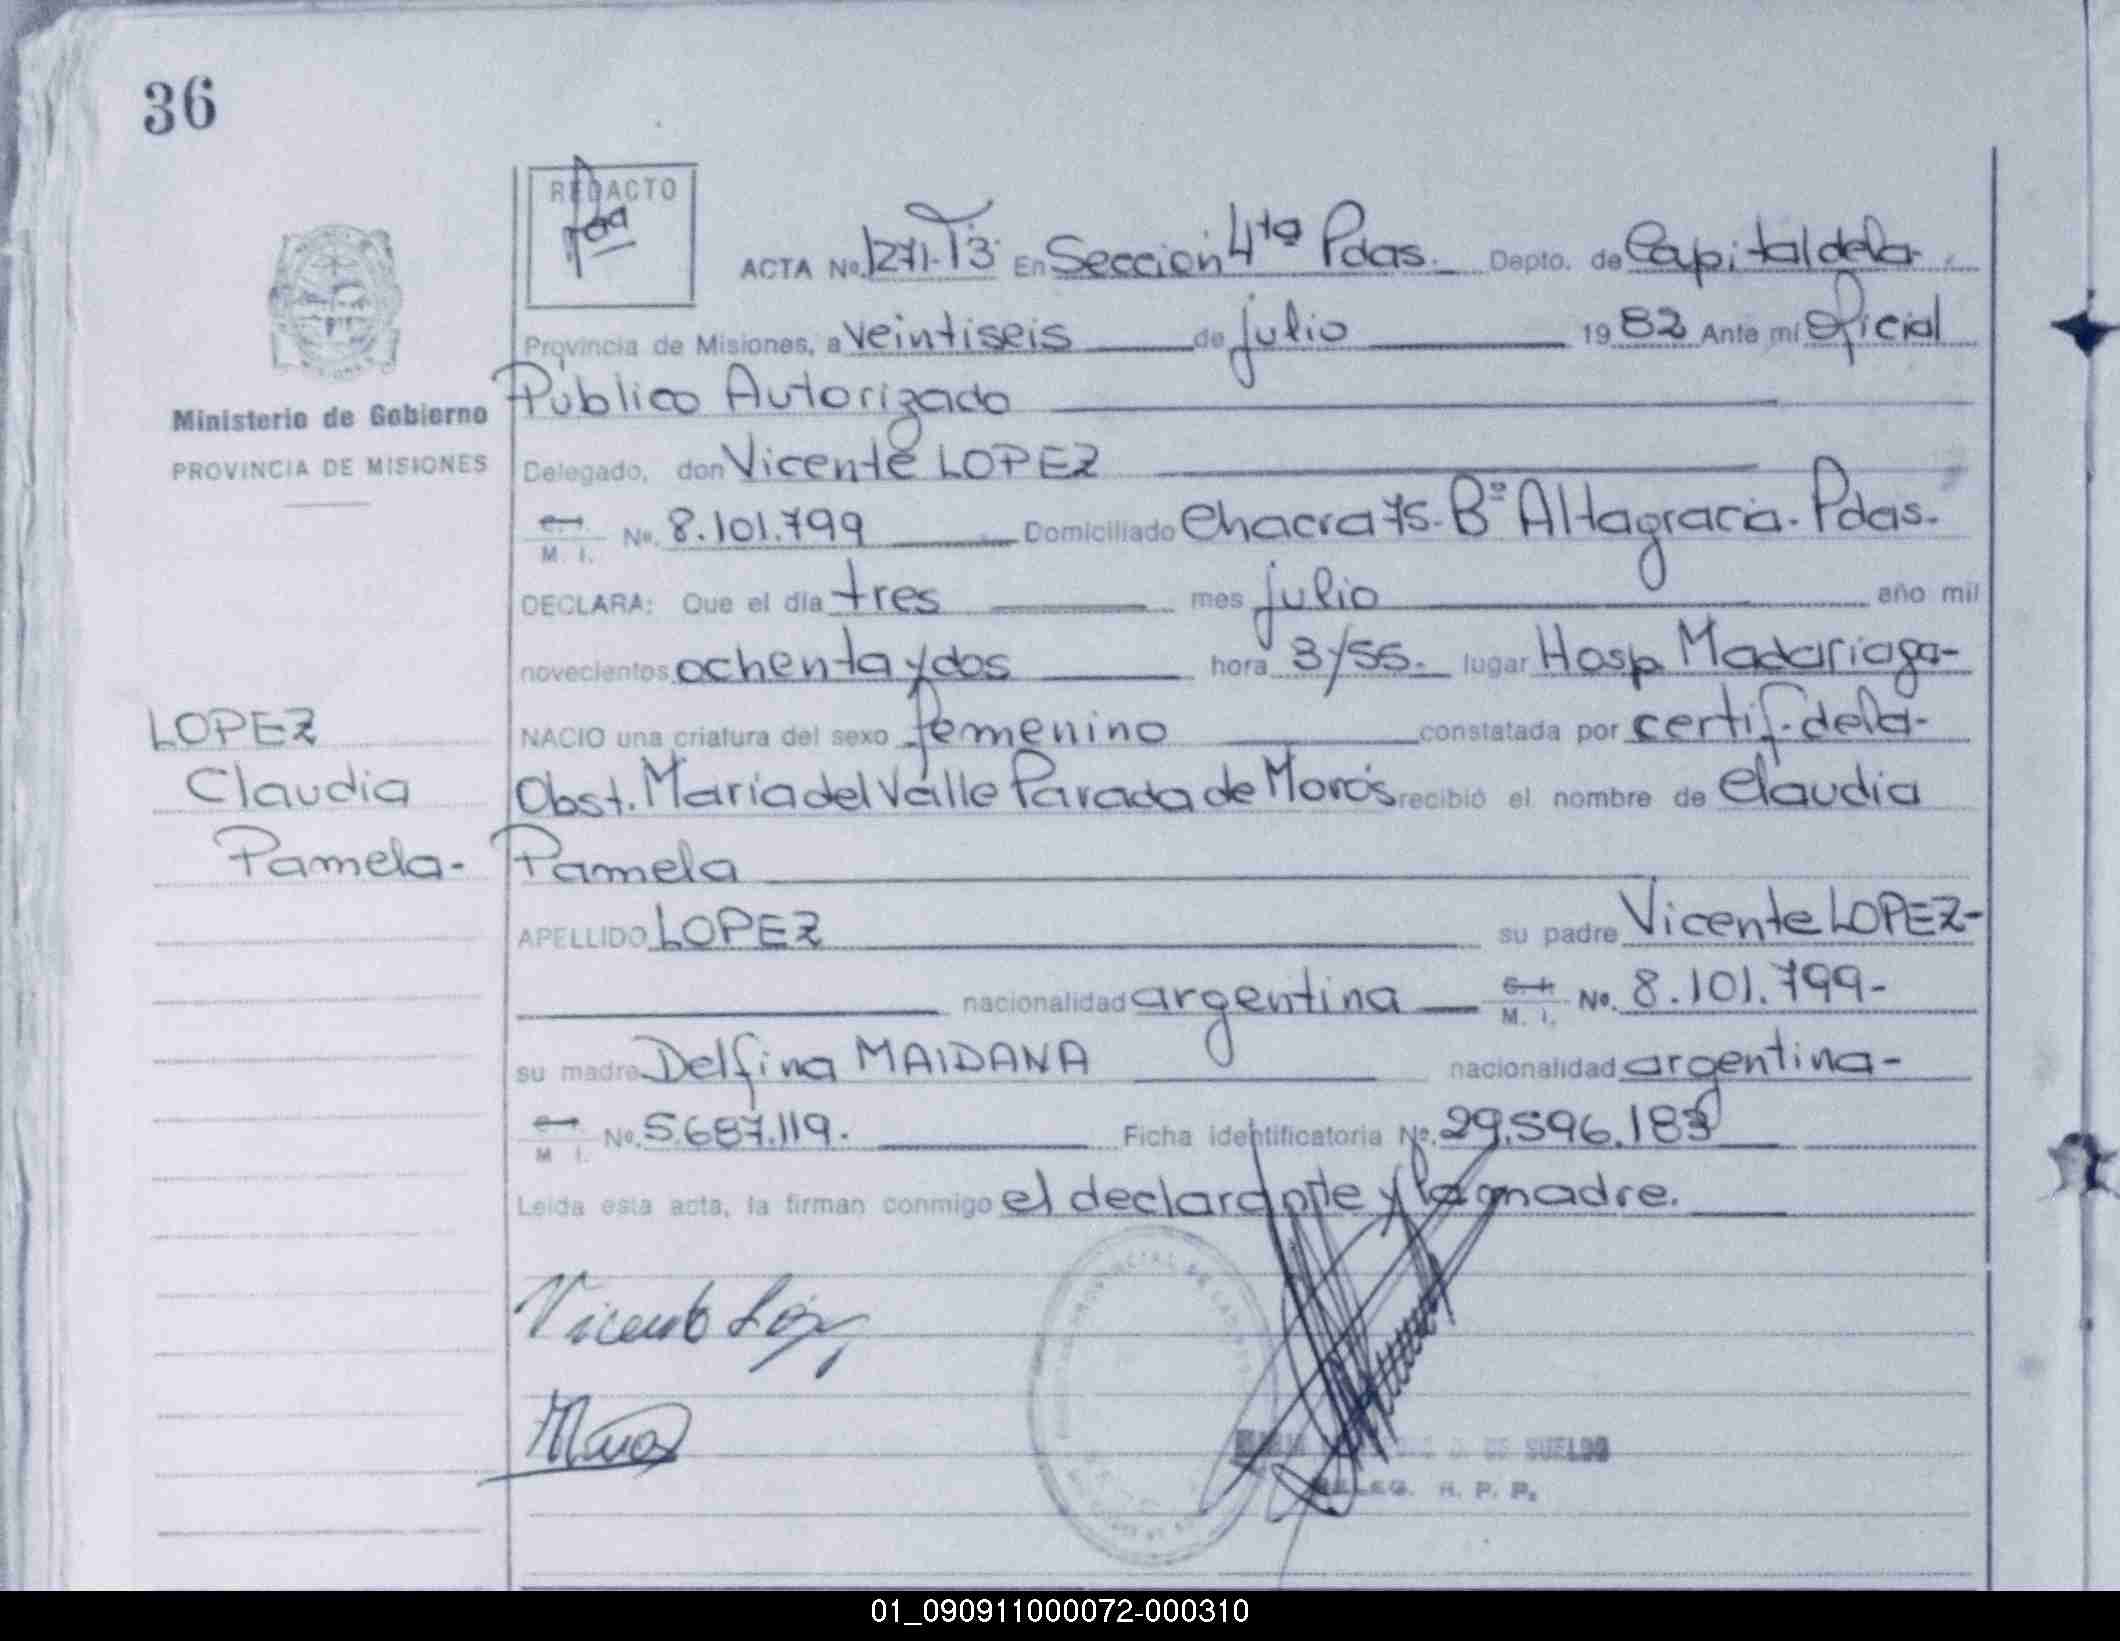 36
REDACTO
ACTA No. 1271-T3 En Sección 4ta Pdas. Depto. de Capital de la
Provincia de Misiones, a veintiseis de julio 1982 Ante mí Oficial
Público Autorizado
Ministerio de Gobierno
PROVINCIA DE MISIONES
Delegado, don Vicente LOPEZ
M. I. No. 8.101.799 Domiciliado Chacra 75. Bº Altagracia. Pdas.
DECLARA: Que el día tres mes julio año mil
novecientos ochenta y dos hora 3/55. lugar Hosp. Madariaga-
LOPEZ
Claudia
Pamela-
NACIO una criatura del sexo femenino constatada por certif. de la-
Obst. María del Valle Parada de Morós recibió el nombre de Claudia
Pamela
APELLIDO LOPEZ su padre Vicente LOPEZ-
nacionalidad argentina M. I. No. 8.101.799-
su madre Delfina MAIDANA nacionalidad argentina-
M I. No. 5.687.119. Ficha identificatoria Nº. 29.596.183
Leída esta acta, la firman conmigo el declarante y la madre.
Vicente López
DE SUELDO
DELEG. R. P. P.
01_090911000072-000310